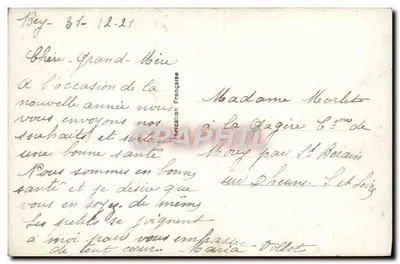 Bey - 31-12-21
Chère Grand-Mère
A l'occasion de la
nouvelle année nous
vous envoyons nos
souhaits et surtout
une bonne santé
Nous sommes en bonne
santé et je désire que
vous en soyez de même
Les petits se joignent
à moi pour vous embrasser
de tout cœur. Maria
Fabrication Française
Madame Morlet
à la Gagère Cne de
par St Berain
sur Dheune - S. et Loire
CPARAMA